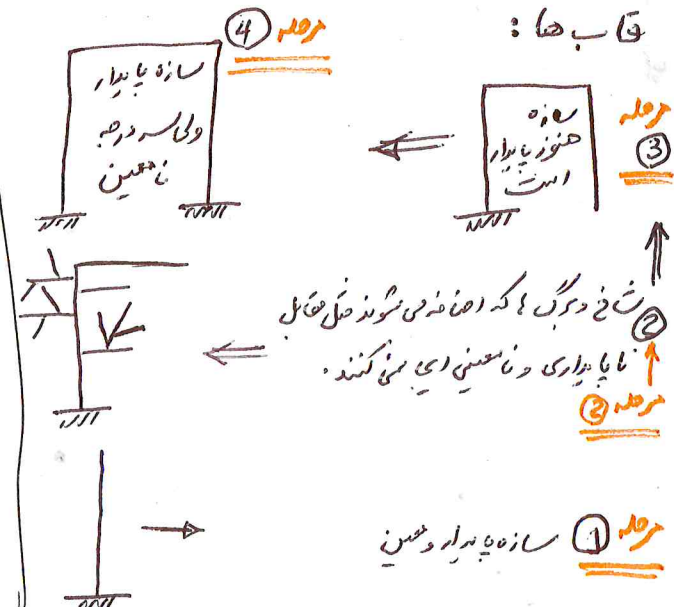 قاب ها :
مرحله ④
سازه پایدار
ولی سه درجه
نامعین
مرحله ③
سازه
هنوز پایدار
است
② شاخ و برگ ها که اضافه می شوند مثل مقابل
ناپایداری و نامعینی ایجاد نمی کنند.
مرحله ②
مرحله ① سازه پایدار و معین